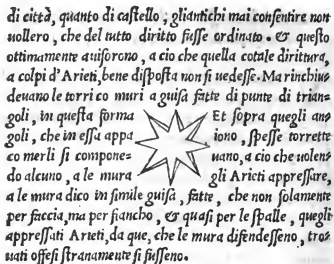 di città, quanto di castello; gliantichi mai consentire non
uollero, che del tutto diritto fusse ordinato. & questo
ottimamente auisorono, a cio che quella cotale dirittura,
a colpi d'Arieti, bene disposta non si uedesse. Ma rinchiu=
deuano le torri co muri a guisa fatte di punte di trian=
goli, in questa forma Et sopra quegli an=
goli, che in essa appa iono, spesse torrette
co merli si compone= uano, a cio che uolen=
do alcuno, a le mura gli Arieti appressare,
a le mura dico in simile guisa, fatte, che non solamente
per faccia, ma per fiancho, & quasi per le spalle, quegli
appressati Arieti, da que, che le mura difendesseno, tro=
uati offesi stranamente si fusseno.